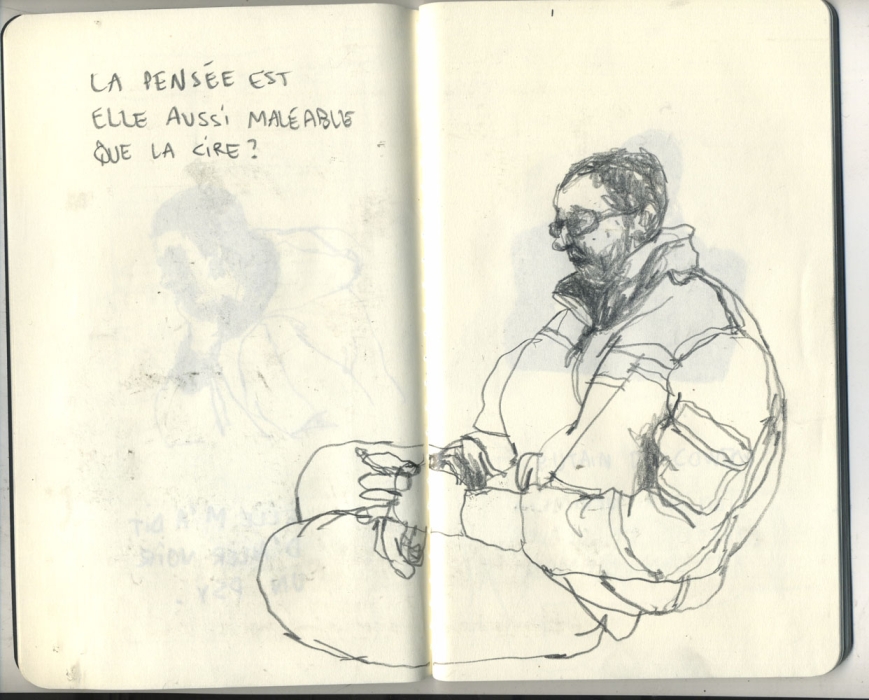 LA PENSÉE EST
ELLE AUSSI MALÉABLE
QUE LA CIRE?